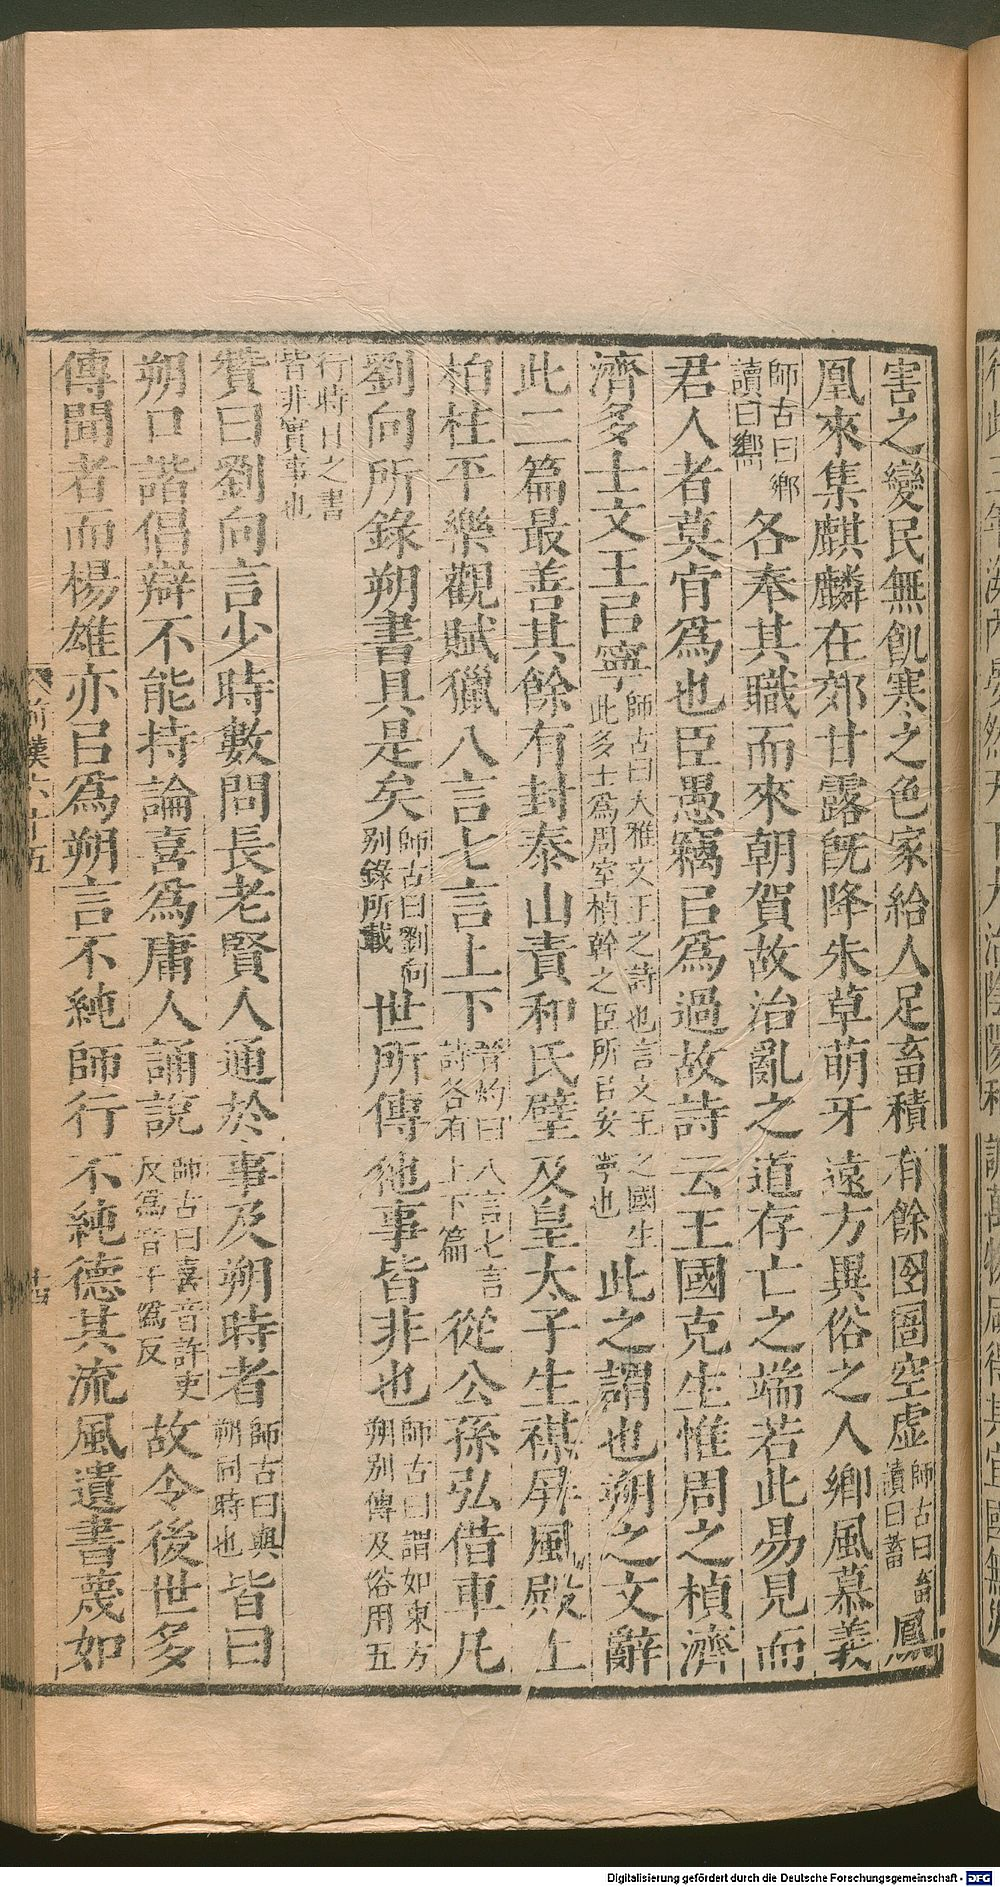 害之變民無飢寒之色家給人足畜積有餘囹圄空虛師古曰畜讀曰蓄鳳
凰來集麒麟在郊甘露旣降朱草萌牙遠方異俗之人鄉風慕義
師古曰鄉讀曰嚮各奉其職而來朝賀故治亂之道存亡之端若此易見而
君人者莫肯爲也臣愚竊㠯爲過故詩云王國克生惟周之楨濟
濟多士文王㠯寧師古曰大雅文王之詩也言文王之國生此多士爲周室楨幹之臣所㠯安寧也此之謂也朔之文辭
此二篇最善其餘有封泰山責和氏璧及皇太子生禖屏風殿上
柏柱平樂觀賦獵八言七言上下晉灼曰八言七言詩各有上下篇從公孫弘借車凡
劉向所錄朔書具是矣師古曰劉向别錄所載世所傳他事皆非也師古曰謂如東方朔别傳及俗用五
行時日之書皆非實事也
贊曰劉向言少時數問長老賢人通於事及朔時者師古曰與朔同時也皆曰
朔口諧倡辯不能持論喜爲庸人誦說師古曰喜音許吏反爲音于僞反故令後世多
傳聞者而楊雄亦㠯爲朔言不純師行不純德其流風遺書蔑如
前漢六十五
十四
Digitalisierung gefördert durch die Deutsche Forschungsgemeinschaft - DFG